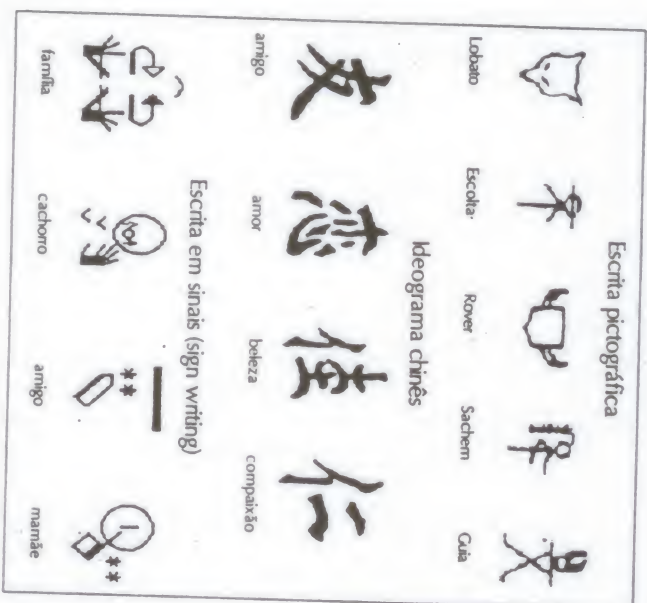 Escrita pictográfica
Lobato Escolta Rover Sachem Guia
Ideograma chinês
友 仁
amigo amor beleza compaixão
Escrita em sinais (sign writing)
família cachorro amigo mamãe